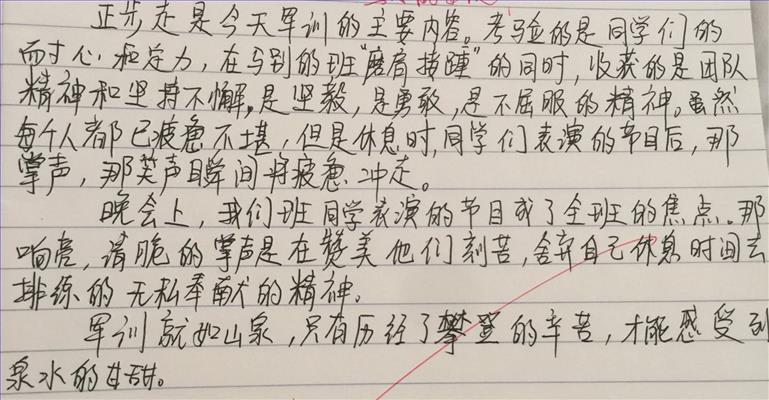 正步走是今天军训的主要内容。考验的是同学们的
耐心和定力，在与别的班"磨肩接踵"的同时，收获的是团队
精神和坚持不懈，是坚毅，是勇敢，是不屈服的精神。虽然
每个人都已疲惫不堪，但是休息时，同学们表演的节目后，那
掌声，那笑声瞬间将疲惫冲走。
晚会上，我们班同学表演的节目成了全班的焦点。那
响亮，清脆的掌声是在赞美他们刻苦，舍弃自己休息时间去
排练的无私奉献的精神。
军训就如山泉，只有历经了攀登的辛苦，才能感受到
泉水的甘甜。